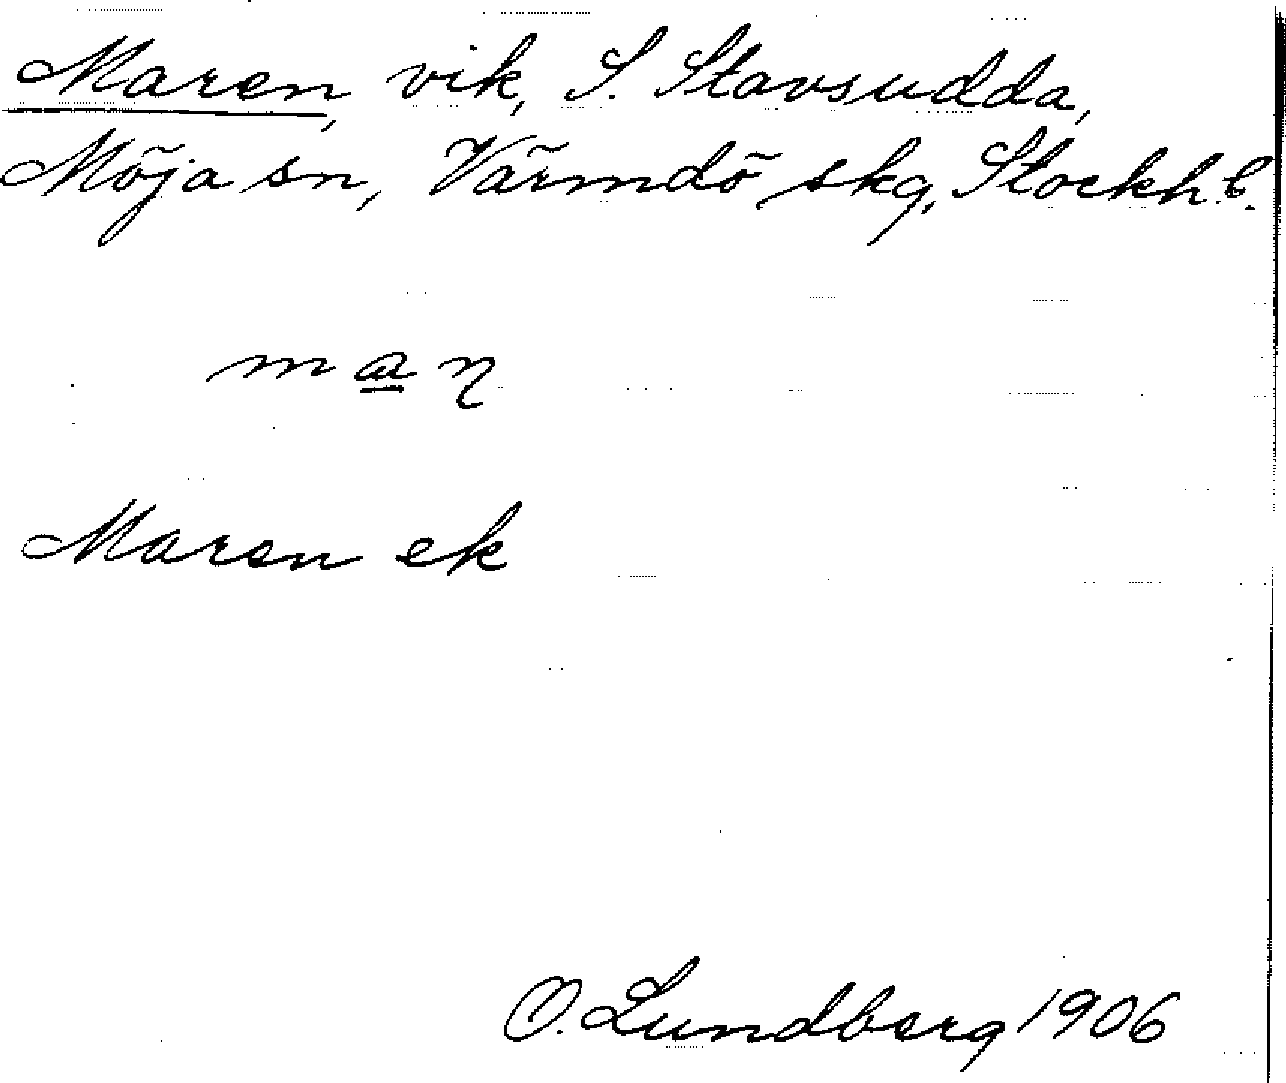 Maren, vik, S. Stavsudda,
Möja sn, Värmdö skg, Stockh. l.
man̢
Maren ek
O. Lundberg 1906